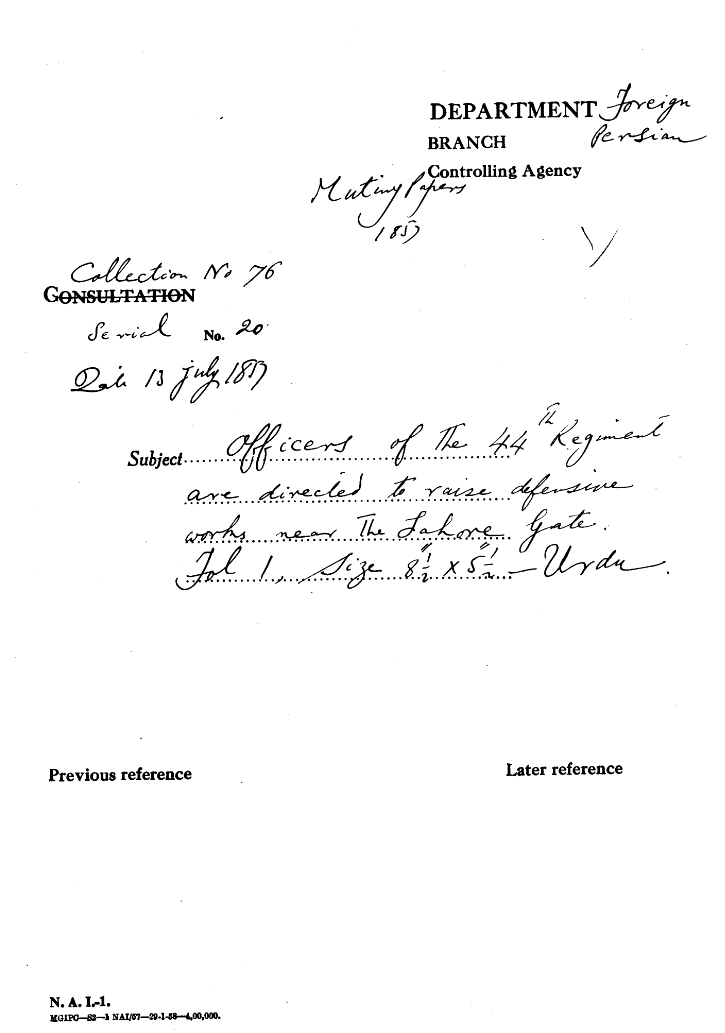 DEPARTMENT Foreign
BRANCH Persian
Controlling Agency
Mutiny Papers
1857
Collection No 76
CONSULTATION
Serial No. 20
Date 13 July 1857
Subject Officers of the 44th Regiment
are directed to raise defensive
works near the Lahore Gate.
Fol 1, Size 8½" x 5½" — Urdu.
Previous reference
Later reference
N. A. I.-1.
MGIPC—S3—1 NAI/57—29-1-58—4,00,000.